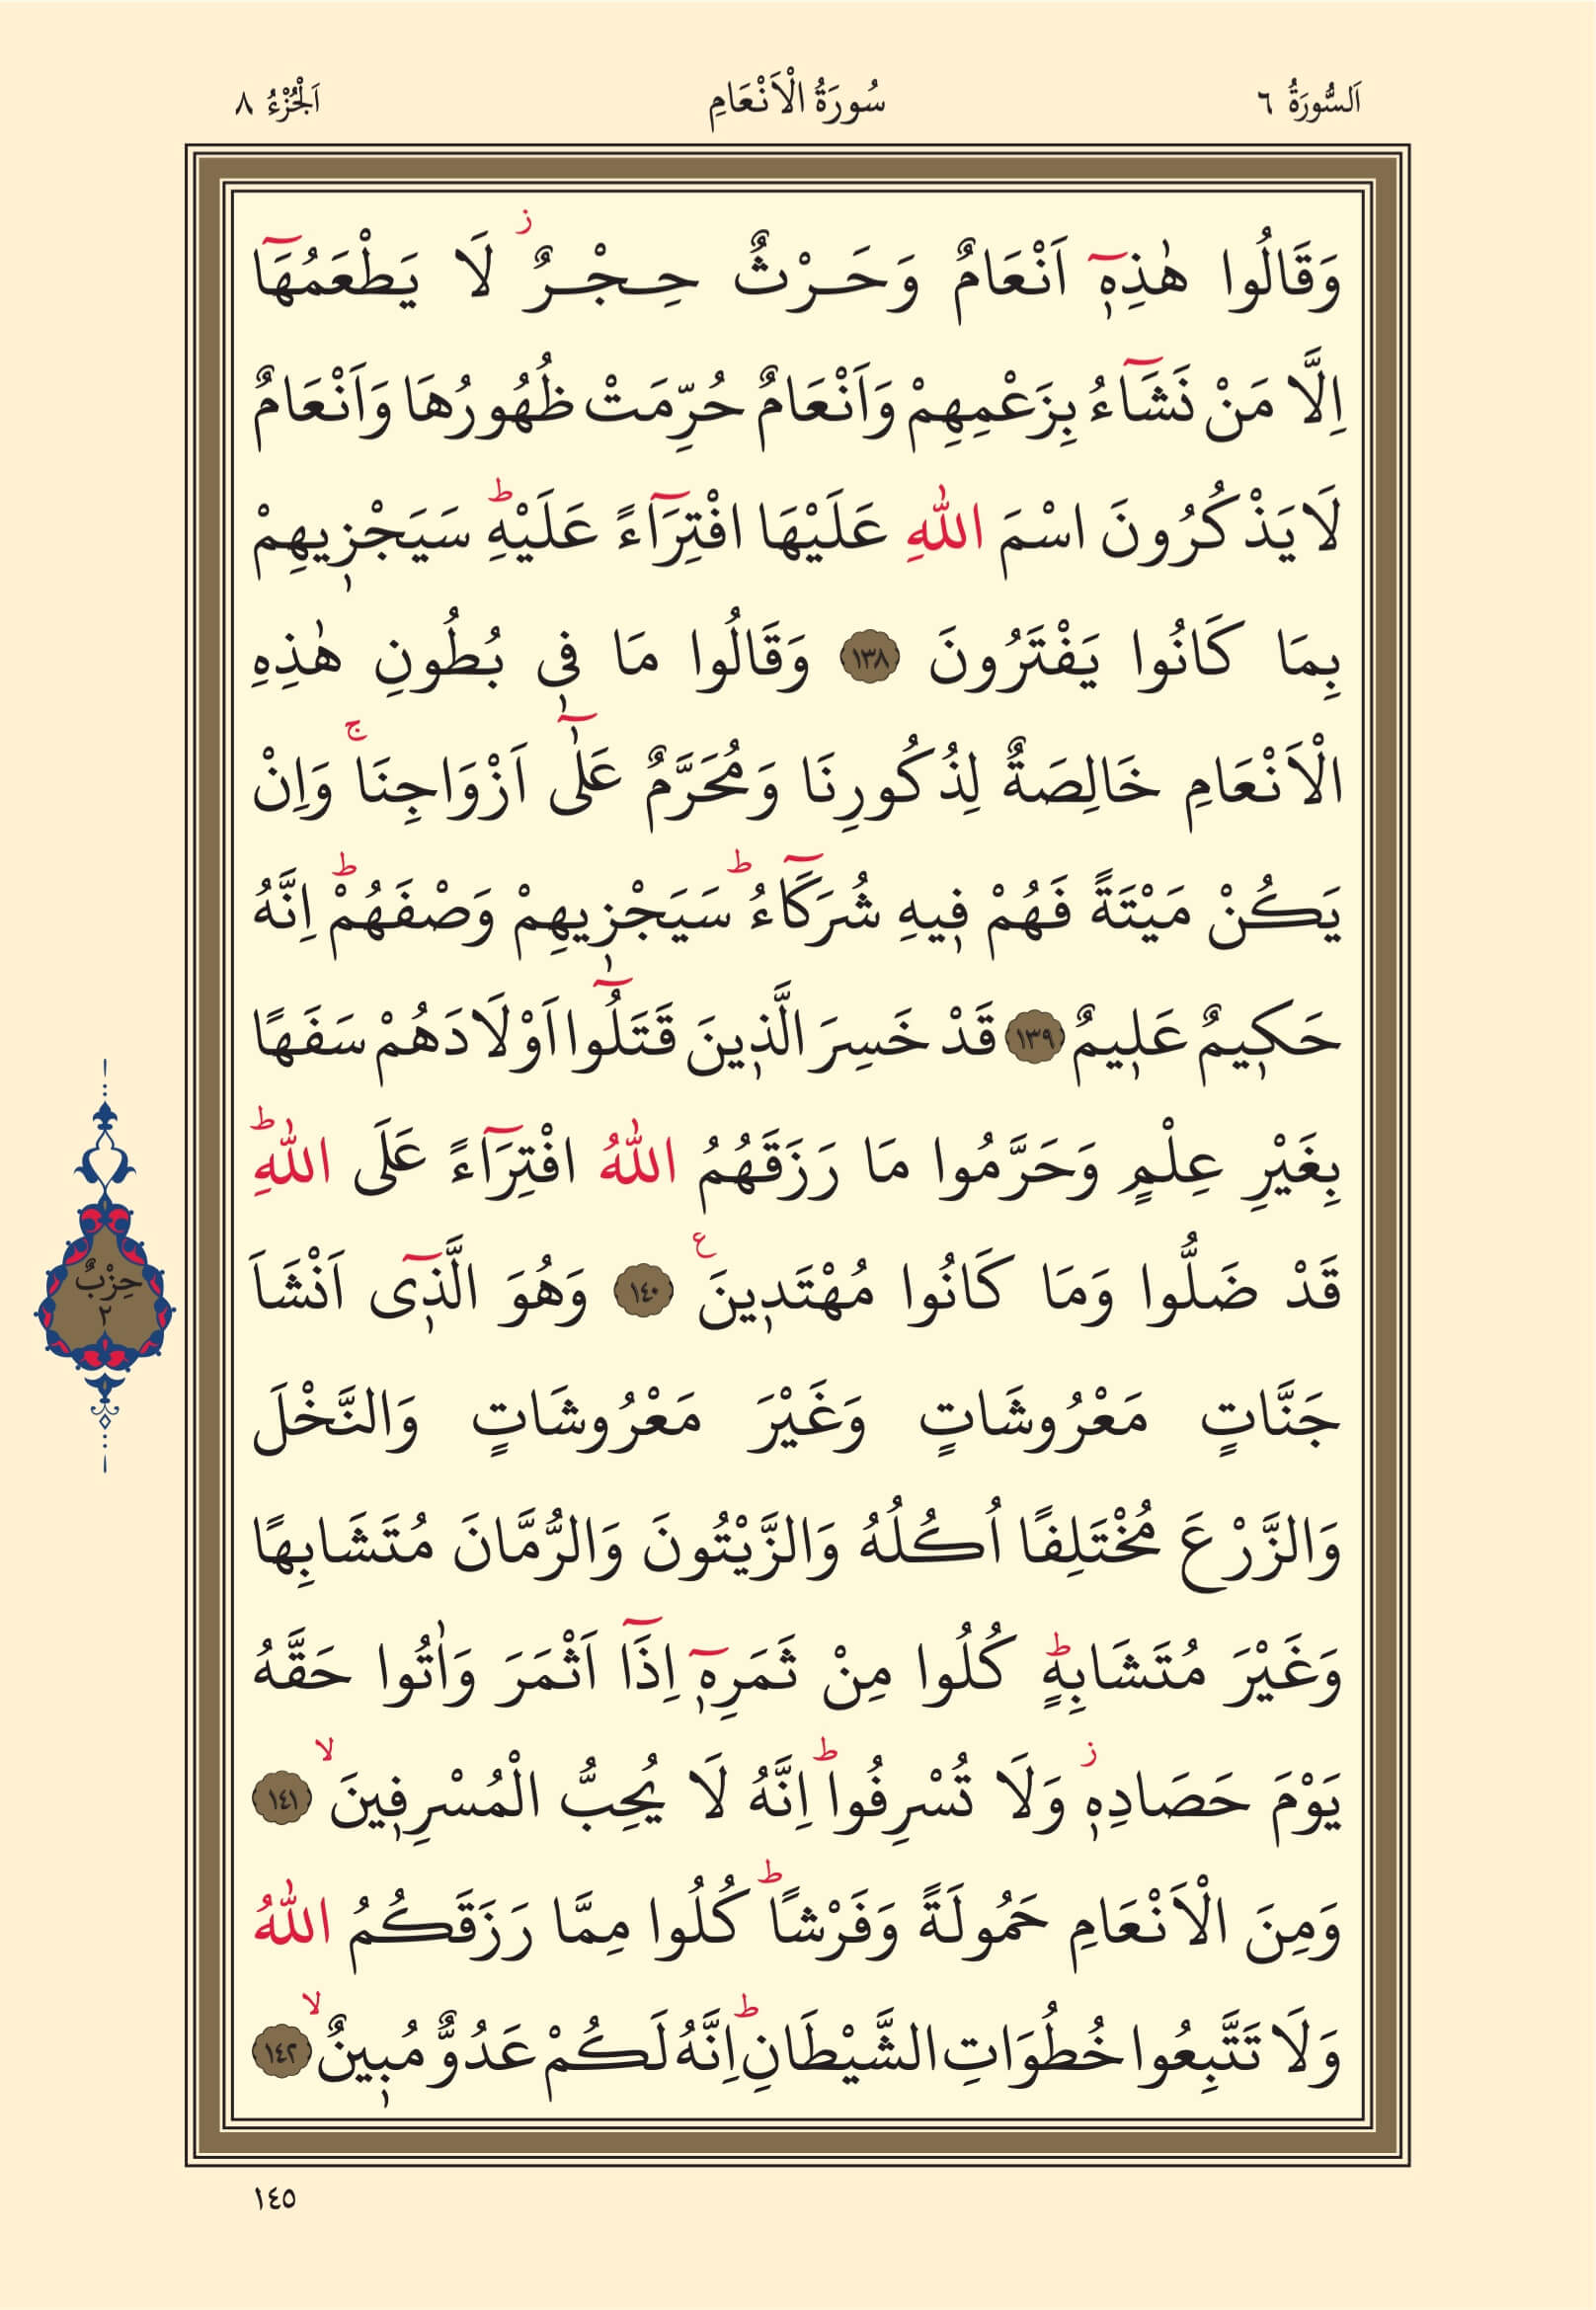 اَلسُّورَةُ ٦ سُورَةُ الْاَنْعَامِ اَلْجُزْءُ ٨
وَقَالُوا هٰذِهٖٓ اَنْعَامٌ وَحَرْثٌ حِجْرٌۘ لَا يَطْعَمُهَٓا
اِلَّا مَنْ نَشَٓاءُ بِزَعْمِهِمْ وَاَنْعَامٌ حُرِّمَتْ ظُهُورُهَا وَاَنْعَامٌ
لَا يَذْكُرُونَ اسْمَ اللّٰهِ عَلَيْهَا افْتِرَٓاءً عَلَيْهِۜ سَيَجْزٖيهِمْ
بِمَا كَانُوا يَفْتَرُونَ ١٣٨ وَقَالُوا مَا فٖى بُطُونِ هٰذِهِ
الْاَنْعَامِ خَالِصَةٌ لِذُكُورِنَا وَمُحَرَّمٌ عَلٰٓى اَزْوَاجِنَاۚ وَاِنْ
يَكُنْ مَيْتَةً فَهُمْ فٖيهِ شُرَكَٓاءُۜ سَيَجْزٖيهِمْ وَصْفَهُمْۜ اِنَّهُ
حَكٖيمٌ عَلٖيمٌ ١٣٩ قَدْ خَسِرَ الَّذٖينَ قَتَلُٓوا اَوْلَادَهُمْ سَفَهًا
بِغَيْرِ عِلْمٍ وَحَرَّمُوا مَا رَزَقَهُمُ اللّٰهُ افْتِرَٓاءً عَلَى اللّٰهِۜ
قَدْ ضَلُّوا وَمَا كَانُوا مُهْتَدٖينَ ع ١٤٠ وَهُوَ الَّذٖٓى اَنْشَاَ
جَنَّاتٍ مَعْرُوشَاتٍ وَغَيْرَ مَعْرُوشَاتٍ وَالنَّخْلَ
وَالزَّرْعَ مُخْتَلِفًا اُكُلُهُ وَالزَّيْتُونَ وَالرُّمَّانَ مُتَشَابِهًا
وَغَيْرَ مُتَشَابِهٍۜ كُلُوا مِنْ ثَمَرِهٖٓ اِذَٓا اَثْمَرَ وَاٰتُوا حَقَّهُ
يَوْمَ حَصَادِهٖؗ وَلَا تُسْرِفُواۜ اِنَّهُ لَا يُحِبُّ الْمُسْرِفٖينَۙ ١٤١
وَمِنَ الْاَنْعَامِ حَمُولَةً وَفَرْشًاۜ كُلُوا مِمَّا رَزَقَكُمُ اللّٰهُ
وَلَا تَتَّبِعُوا خُطُوَاتِ الشَّيْطَانِۜ اِنَّهُ لَكُمْ عَدُوٌّ مُبٖينٌۙ ١٤٢
حِزْبٌ
٢
١٤٥